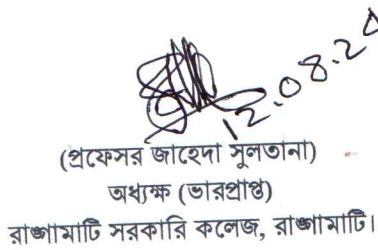 12.08.20
(প্রফেসর জাহেদা সুলতানা)
অধ্যক্ষ (ভারপ্রাপ্ত)
রাঙ্গামাটি সরকারি কলেজ, রাঙ্গামাটি।